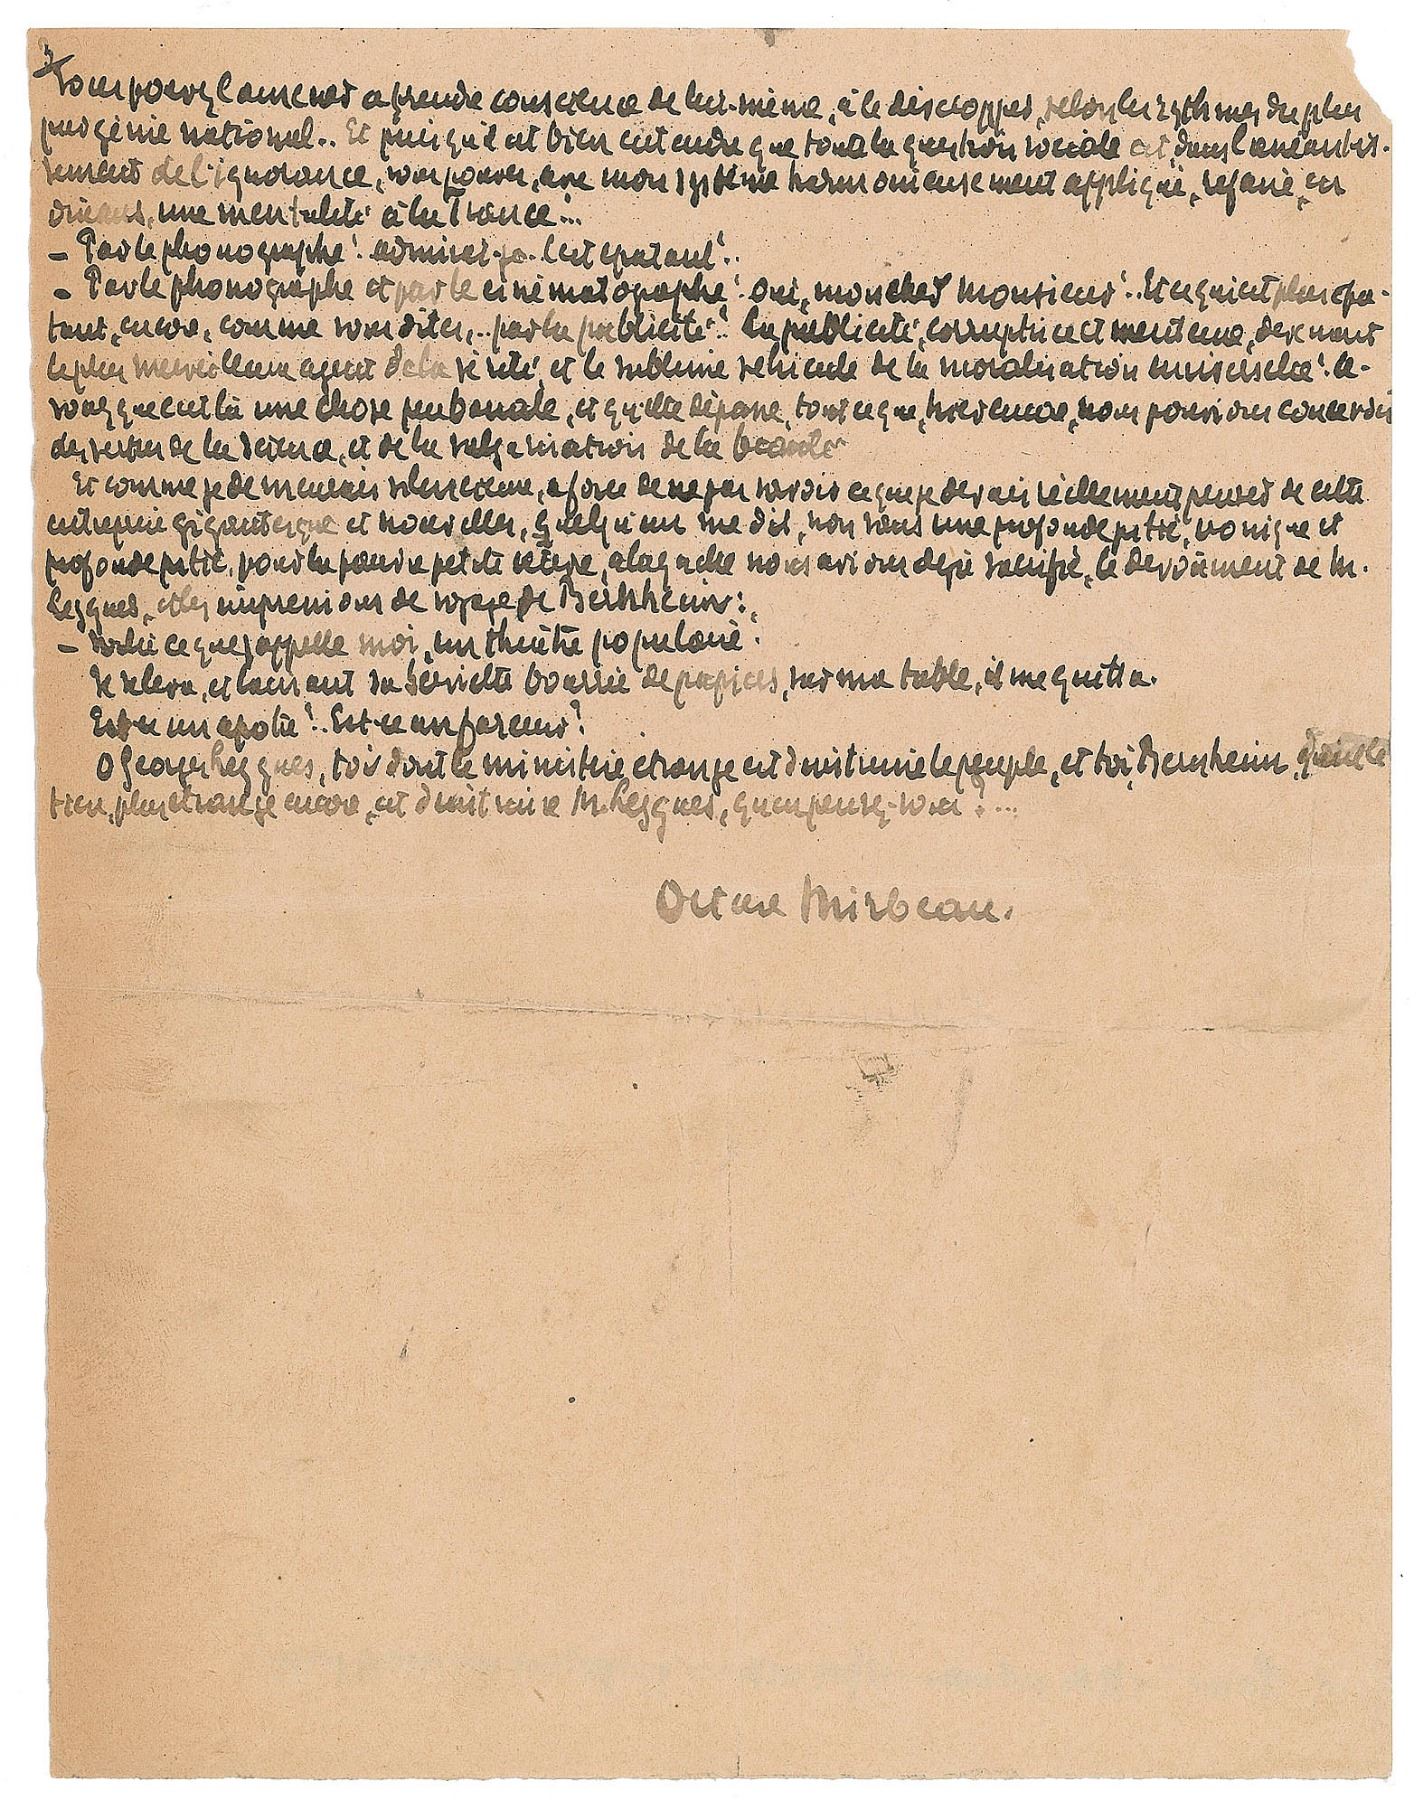 3
Vous pouvez l'amener à prendre conscience de lui-même, à le développer, selon les rythmes du plus
pur génie national.. Et puisqu'il est bien entendu que toute la question sociale est, dans l'anéantis-
sement de l'ignorance, vous pouvez, avec mon système harmonieusement appliqué, refaire, en
dix ans, une mentalité à la France!...
— Par le phonographe! admirai-je. C'est épatant!..
— Par le phonographe et par le cinématographe! Oui, mon cher Monsieur!.. Et ce qui est plus épa-
tant, encore, comme vous dites,.. par la publicité!.. La publicité, corruptrice et menteuse, devenant
le plus merveilleux agent de la vérité, et le sublime véhicule de la moralisation universelle! A-
vouez que c'est là une chose peu banale, et qu'elle dépasse, tout ce que, hier encore, nous pouvions concevoir
des vertus de la science, et de la vulgarisation de la beauté
Et comme je demeurais silencieux, à force de ne pas savoir ce que je devais réellement penser de cette
entreprise gigantesque et nouvelle, quelqu'un me dit, non sans une profonde pitié, ironique et
profonde pitié, pour la pauvre petite, à laquelle nous avions déjà sacrifié, le dévoûment de M.
Leygues, et les impressions de voyage de Bernheim:
— Voilà ce que j'appelle moi, un théâtre populaire!
Il se leva, et laissant sa serviette bourrée de papiers, sur ma table, il me quitta.
Est-ce un apôtre?.. Est-ce un farceur?
O Georges Leygues, toi dont le ministère étrange est d'instruire le peuple, et toi, Bernheim, dont le
tien, plus étrange encore, est d'instruire M. Leygues, qu'en pensez-vous?...
Octave Mirbeau.